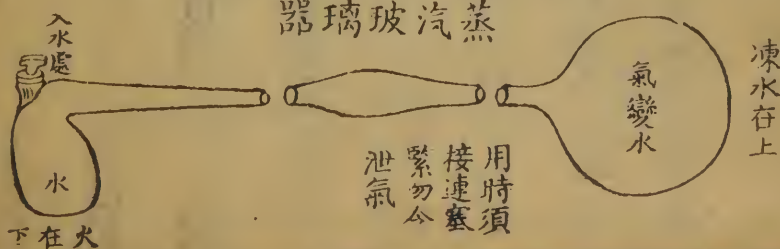 蒸汽玻璃器
凍水在上
氣變水
用時須
接連塞
緊勿令
泄氣
入水處
水
火在下